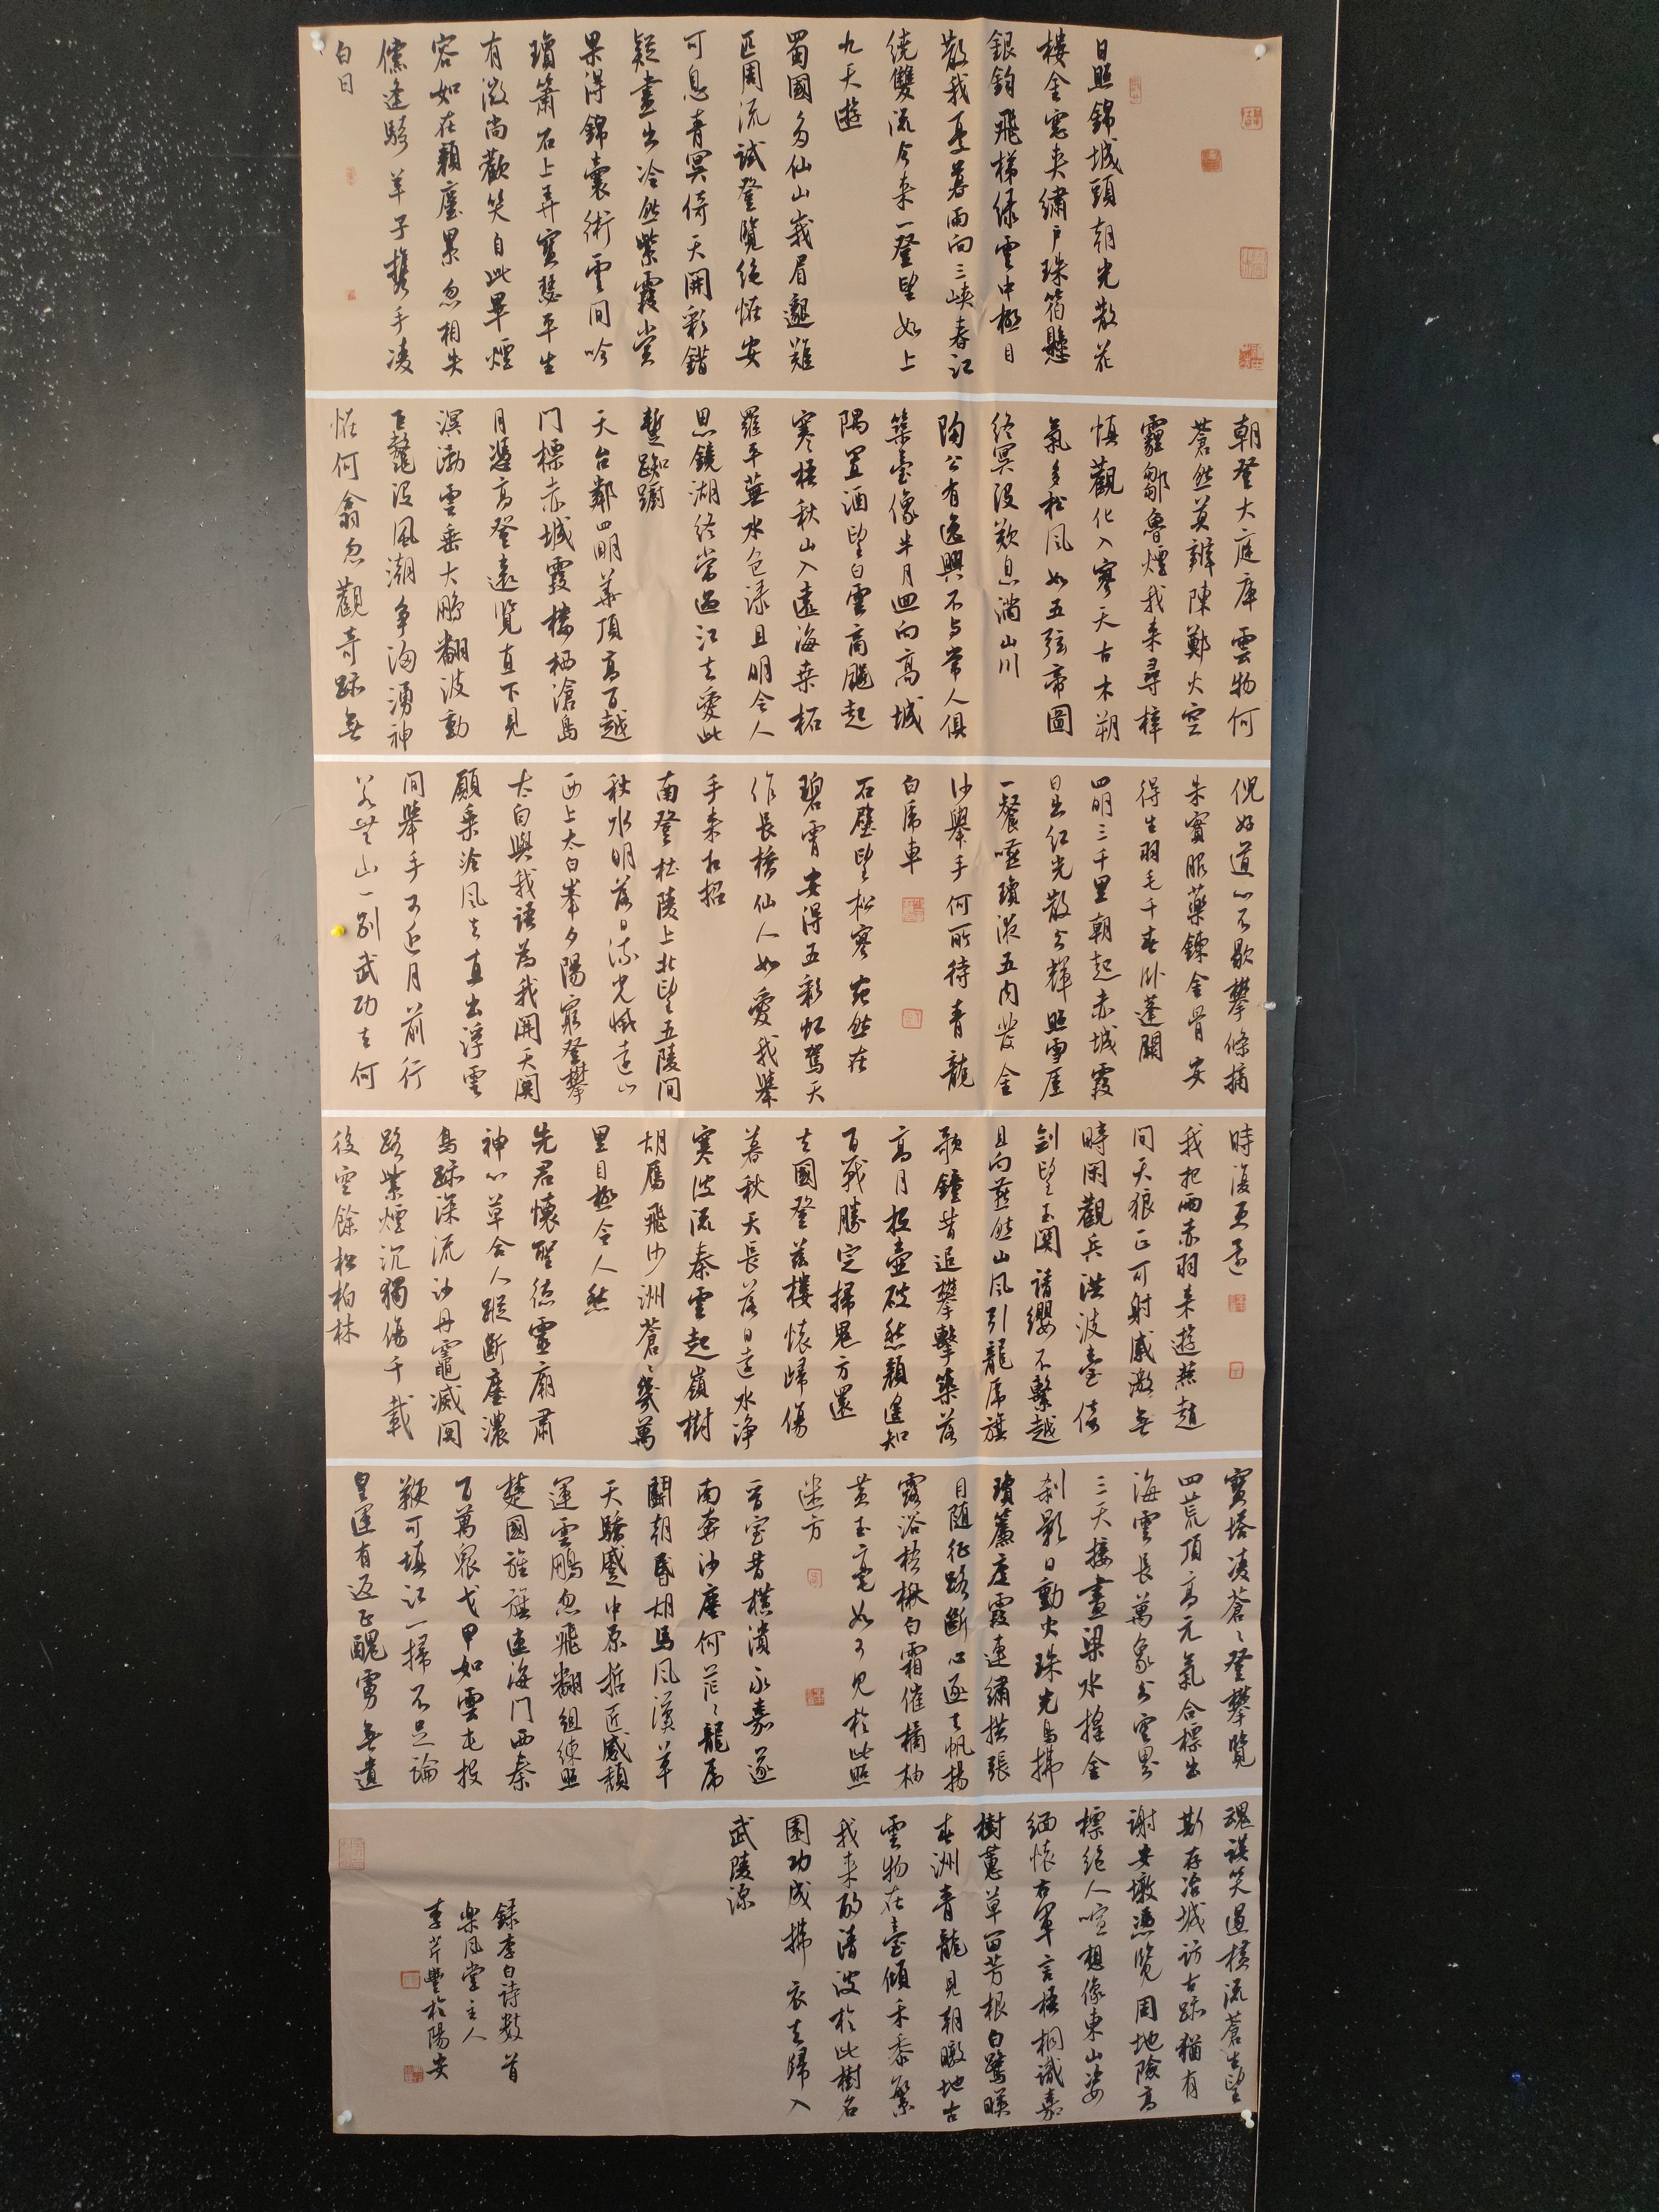 日照錦城頭朝光散花
樓金窓夾繡戶珠箔懸
銀鉤飛梯綠雲中極目
散我憂暮雨向三峽春江
繞雙流今來一登望如上
九天遊
蜀國多仙山峨眉邈難
匹周流試登覽絕怪安
可息青冥倚天開彩錯
疑畫出冷然紫霞賞
果得錦囊術雲間吟
瓊簫石上弄寶瑟平生
有微尚歡笑自此畢煙
容如在顏塵累忽相失
儻逢騎羊子攜手凌
白日
朝登大庭庫雲物何
蒼然莫辨陳鄭火空
霾鄒魯煙我來尋梓
慎觀化入寥天古木朔
氣多松風如五弦帝圖
終冥沒歎息滿山川
陶公有逸興不与常人俱
築臺像半月迴向高城
隅置酒望白雲商飆起
寒梧秋山入遠海桑柘
羅平蕪水色淥且明令人
思鏡湖終當過江去愛此
暫踟躕
天台鄰四明華頂高百越
门標赤城霞樓栖滄島
月憑高登遠覽直下見
溟渤雲垂大鵬翻波動
巨鼇沒風潮爭洶湧神
怪何翕忽觀奇跡無
倪好道心不歇攀條摘
朱實服藥鍊金骨安
得生羽毛千春卧蓬闕
四明三千里朝起赤城霞
日出紅光散分輝照雪崖
一餐嚥瓊液五内發金
沙舉手何所待青龍
白虎車
石壁望松寥宛然在
碧霄安得五彩虹駕天
作長橋仙人如愛我舉
手來相招
南登杜陵上北望五陵間
秋水明落日流光滅遠山
西上太白峯夕陽窮登攀
太白與我語為我開天関
願乘泠風去直出浮雲
間舉手可近月前行
若無山一別武功去何
時復更還
我把兩赤羽來遊燕趙
間天狼正可射感激無
時閑觀兵洪波臺倚
劍望玉関請纓不繫越
且向燕然山風引龍虎旗
歌鐘昔追攀擊築落
高月投壺破愁顏遙知
百戰勝定掃鬼方還
去國登茲樓懷歸傷
暮秋天長落日遠水净
寒波流秦雲起嶺樹
胡鴈飛沙洲蒼〻幾萬
里目極令人愁
先君懷聖德靈廟肅
神心草合人蹤斷塵濃
鳥跡深流沙丹竈滅関
路紫煙沉獨傷千載
後空餘松柏林
寶塔凌蒼〻登攀覽
四荒頂高元氣合標出
海雲長萬象分空界
三天接畫梁水搖金
刹影日動火珠光鳥拂
瓊簾度霞連繡栱張
目随征路斷心逐去帆揚
露浴梧楸白霜催橘柚
黄玉毫如可見於此照
迷方
晋室昔横潰永嘉遂
南奔沙塵何茫〻龍虎
鬭朝昏胡馬風漢草
天驕蹙中原哲匠感頽
運雲鵬忽飛翻組練照
楚國旌旗連海门西秦
百萬衆戈甲如雲屯投
鞭可填江一掃不足論
皇運有返正醜虜無遺
魂談笑遏横流蒼生望
斯存冶城訪古跡猶有
謝安墩憑覽周地險高
標絕人喧想像東山姿
緬懷右軍言梧桐識嘉
樹蕙草留芳根白鷺暎
春洲青龍見朝暾地古
雲物在臺傾禾黍繁
我來酌清波於此樹名
園功成拂衣去歸入
武陵源
録李白诗数首
樂風堂主人
李芹豐於陽安